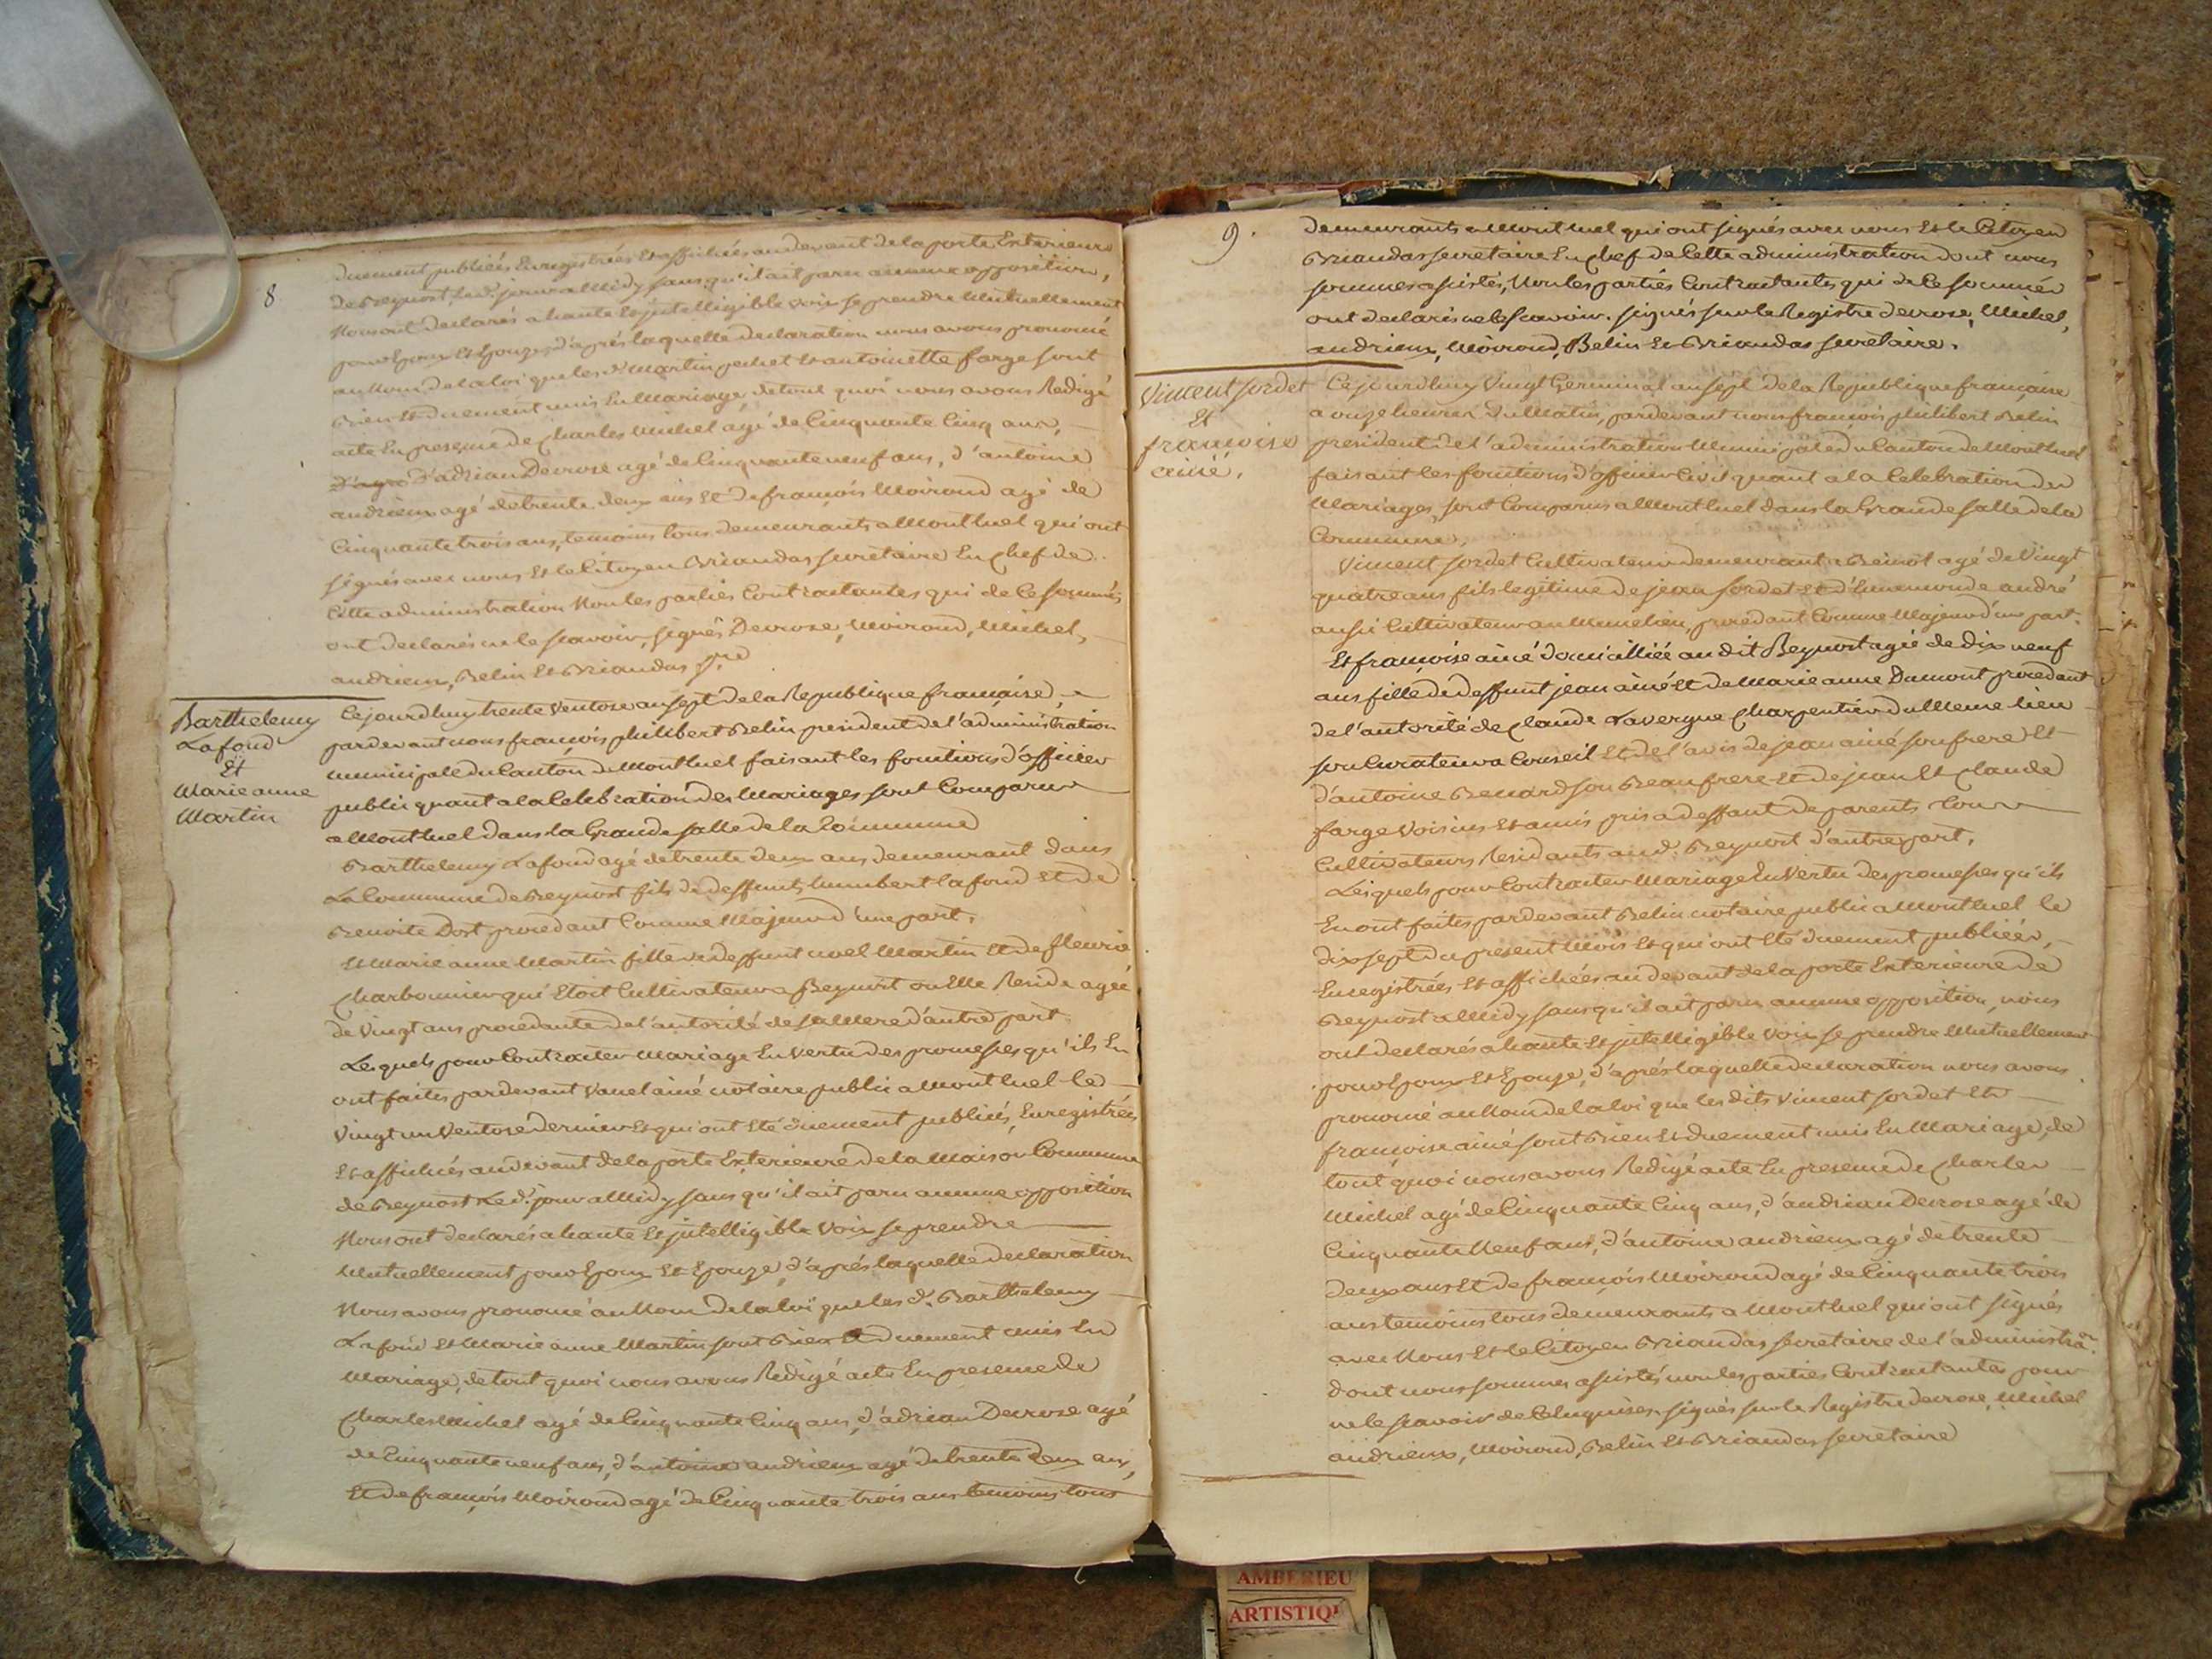 8
duement publiés Enregistrés Et affichés au devant de la porte Exterieure
de Beynost Led. jour a Midy sans qu'il ait paru aucune opposition,
Nous ont declarés a haute Et jntelligible voix se prendre Mutuellement
pour Epoux Et Epouze, d'aprés laquelle declaration nous avons prononcé
au Nom de la loi que les d. Martin pechet Et antoinette farge sont
Bien Et duement unis En Mariage, de tout quoi nous avons Redigé
acte En presence de Charles Michel agé de Cinquante Cinq ans,
D'agro D'adrian Decrose agé de Cinquante neuf ans, d'antoine
andrieux agé de trente deux ans Et de françois Moirond agé de
Cinquante trois ans, temoins tous demeurants a Montluel qui ont
signés avec nous Et le Citoyen Briandas secretaire En chef de
Cette administration Non les parties Contractantes qui de Ce sommés
ont declarés ne le scavoir, signés Decrose, Moirond, Michel,
andrieux, Belin Et Briandas sre
Barthelemy
Lafond
Et
Marie anne
Martin
Cejourdhuy trente Ventose an sept de la Republique française,
pardevant nous françois philibert Belin president de l'administration
municipale du Canton de Montluel faisant les fonctions d'officier
public quant a la Celebration des Mariages sont Comparus
a Montluel dans la Grande salle de la Commune
Barthelemy Lafond agé de trente deux ans demeurant dans
La Commune de Beynost fils de deffunts humbert lafond Et de
Benoite Dost procedant Comme Majeur d'une part,
Et Marie anne Martin fille de deffunt noel Martin Et de fleurie
Charbonnier qui Etoit Cultivateur a Beynost ou Elle Reside agée
de Vingt ans procedante de l'autorité de sa Mere d'autre part
Lesquels pour Contracter Mariage En Vertu des promesses qu'ils En
ont faites pardevant Vanel ainé notaire public a Montluel le
Vingt un Ventose dernier Et qui ont Eté duement publiés, Enregistrés
Et affichés au devant de la porte Exterieure de la Maison Commune
de Beynost Led. jour a Midy sans qu'il ait paru aucune opposition
Nous ont declarés a haute Et jntelligible Voix se prendre
Mutuellement pour Epoux Et Epouze, d'aprés laquelle declaration
Nous avons prononcé au Nom de la loi que les d. Barthelemy
Lafond Et Marie anne Martin sont Bien Et duement unis En
Mariage, de tout quoi nous avons Redigé acte En presence de
Charles Michel agé de Cinquante Cinq ans, d'adrian Decrose agé
de Cinquante neuf ans, d'antoine andrieux agé de trente deux ans,
Et de françois Moirond agé de Cinquante trois ans temoins tous
9.
demeurants a Montluel qui ont signés avec nous Et le Citoyen
Briandas secretaire En Chef de Cette administration dont nous
sommes assistés, Non les parties Contractantes qui de Ce sommés
ont declarés ne le scavoir. signés sur le Registre decrose, Michel,
andrieux, Moirond, Belin Et Briandas secretaire.
Vincent sordet
Et
françoise
ainé.
Cejourdhuy Vingt Germinal an sept de la Republique française
a onze heures du Matin, pardevant nous françois philibert Belin
president de l'administration Municipale du Canton de Montluel
faisant les fonctions d'officier Civil quant a la Celebration des
Mariages, sont Comparus a Montluel dans la Grande salle de la
Commune,
Vincent sordet Cultivateur demeurant a Beinost agé de Vingt
quatre ans fils legitime de jean sordet Et d'Ennemonde andré
aussi Cultivateur au Meme lieu, procedant Comme Majeur d'une part.
Et françoise ainé domicilliée au dit Beynost agée de dix neuf
ans fille de deffunt jean ainé Et de Marie anne Dumont procedant
de l'autorité de Claude Lavergne Charpentier du Meme lieu
son Curateur a Conseil Et de l'avis de jean ainé son frere Et
d'antoine Benard son Beaufrere Et de jean Et Claude
farge Voisins Et amis pris a deffaut de parents tous
Cultivateurs Residants aud. Beynost d'autre part,
Lesquels pour Contracter Mariage En Vertu des promesses qu'ils
En ont faites pardevant Belin notaire public a Montluel le
dix sept du present Mois Et qui ont Eté duement publiées,
Enregistrées Et affichées au devant de la porte Exterieure de
Beynost a Midy sans qu'il ait paru aucune opposition, nous
ont declarés a haute Et jntelligible Voix se prendre Mutuellement
pour Epoux Et Epouze, d'aprés laquelle declaration nous avons
prononcé au Nom de la loi que les dits Vincent sordet Et
françoise ainé sont Bien Et duement unis En Mariage, de
tout quoi nous avons Redigé acte En presence de Charles
Michel agé de Cinquante Cinq ans, d'andrian Decrose agé de
Cinquante Neuf ans, d'antoine andrieux agé de trente
deux ans Et de françois Moirond agé de Cinquante trois
ans temoins tous demeurants a Montluel qui ont signés
avec Nous Et le Citoyen Briandas secretaire de l'administra.
dont nous sommes assistés non les parties Contractantes pour
ne le scavoir de Ce Enquises. signés sur le Registre decrose, Michel
andrieux, Moirond, Belin Et Briandas secretaire
AMBERIEU
ARTISTIQ